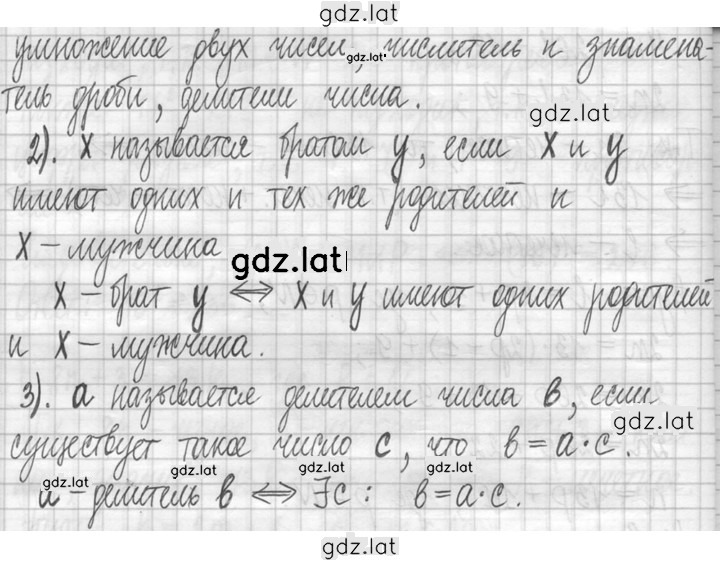 gdz.lat
умножение двух чисел, числитель и знамена-
gdz.lat
тель дроби, делители числа.
gdz.lat
2). X называется братом y, если X и y
имеют одних и тех же родителей и
X – мужчина
gdz.lat
X – брат y ⇔ X и y имеют одних родителей
и X – мужчина.
3). a называется делителем числа b, если
gdz.lat
существует такое число c, что b = a · c.
gdz.lat gdz.lat gdz.lat
a – делитель b ⇔ ∃c : b = a · c.
gdz.lat